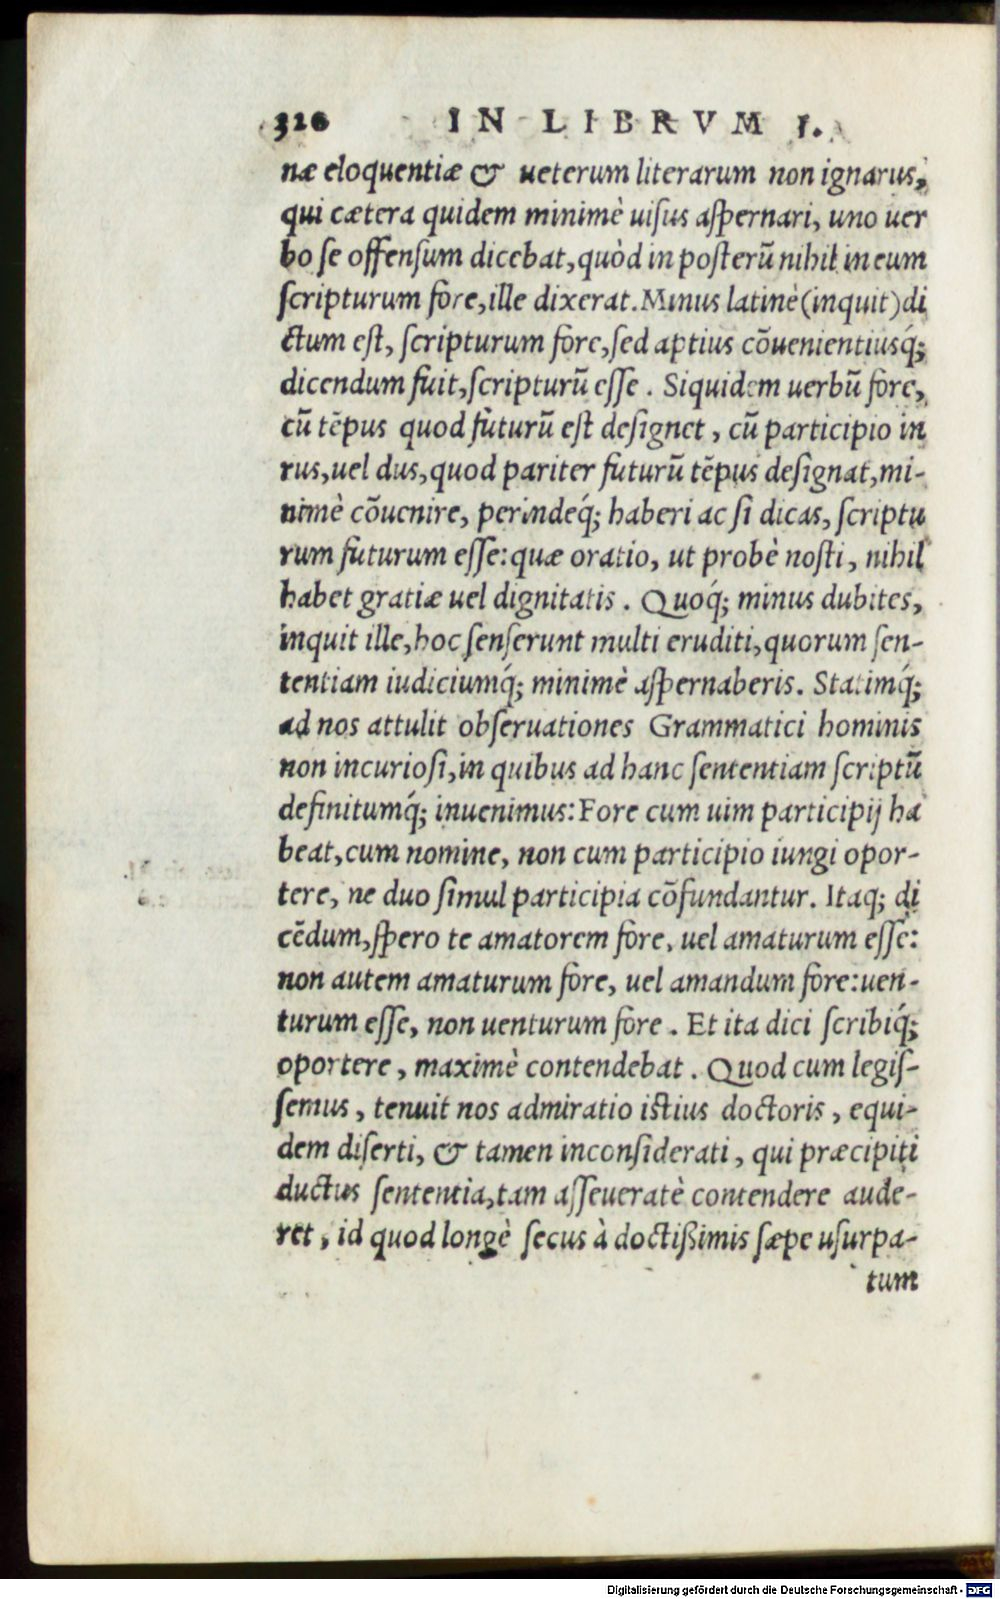 320 IN LIBRVM I.
næ eloquentiæ & ueterum literarum non ignarus,
qui cætera quidem minimè uisus aspernari, uno uer
bo se offensum dicebat, quòd in posterū nihil in eum
scripturum fore, ille dixerat. Minus latinè (inquit) di
ctum est, scripturum fore, sed aptius cōuenientiusq́;
dicendum fuit, scripturū esse. Siquidem uerbū fore,
cū tēpus quod futurū est designet, cū participio in
rus, uel dus, quod pariter futurū tēpus designat, mi-
nimè cōuenire, perindeq́; haberi ac si dicas, scriptu
rum futurum esse: quæ oratio, ut probè nosti, nihil
habet gratiæ uel dignitatis. Quoq́; minus dubites,
inquit ille, hoc senserunt multi eruditi, quorum sen-
tentiam iudiciumq́; minimè aspernaberis. Statimq́;
ad nos attulit obseruationes Grammatici hominis
non incuriosi, in quibus ad hanc sententiam scriptū
definitumq́; inuenimus: Fore cum uim participij ha
beat, cum nomine, non cum participio iungi opor-
tere, ne duo simul participia cōfundantur. Itaq; di
cēdum, spero te amatorem fore, uel amaturum esse:
non autem amaturum fore, uel amandum fore: uen-
turum esse, non uenturum fore. Et ita dici scribiq́;
oportere, maximè contendebat. Quod cum legis-
semus, tenuit nos admiratio istius doctoris, equi-
dem diserti, & tamen inconsiderati, qui præcipiti
ductus sententia, tam asseueratè contendere aude-
ret, id quod longè secus à doctißimis sæpe usurpa-
tum
Digitalisierung gefördert durch die Deutsche Forschungsgemeinschaft - DFG